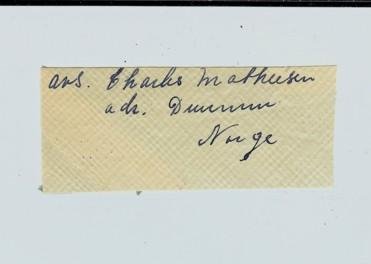 avs. Charles Mathiesen
adr. Drammen
Norge